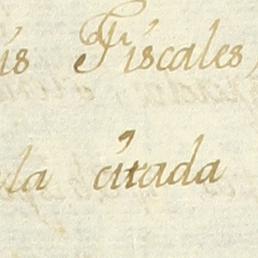 is Fiscales,
la citada